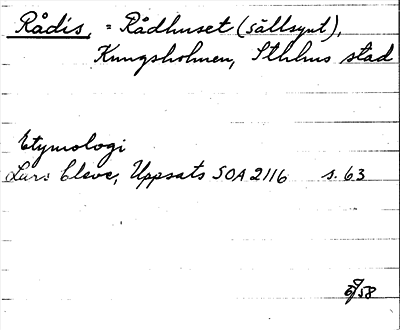 Rådis, = Rådhuset (sällsynt),
Kungsholmen, Sthlms stad
Etymologi
Lars Cleve, Uppsats SOA 2116 s. 63
58